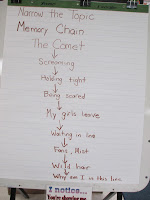 Narrow the Topic
Memory Chain
The Comet
Screaming
Holding tight
Being scared
My girls leave
Waiting in line
Fans, Mist
Wild hair
Why am I in this line
I notice...
You're showing me